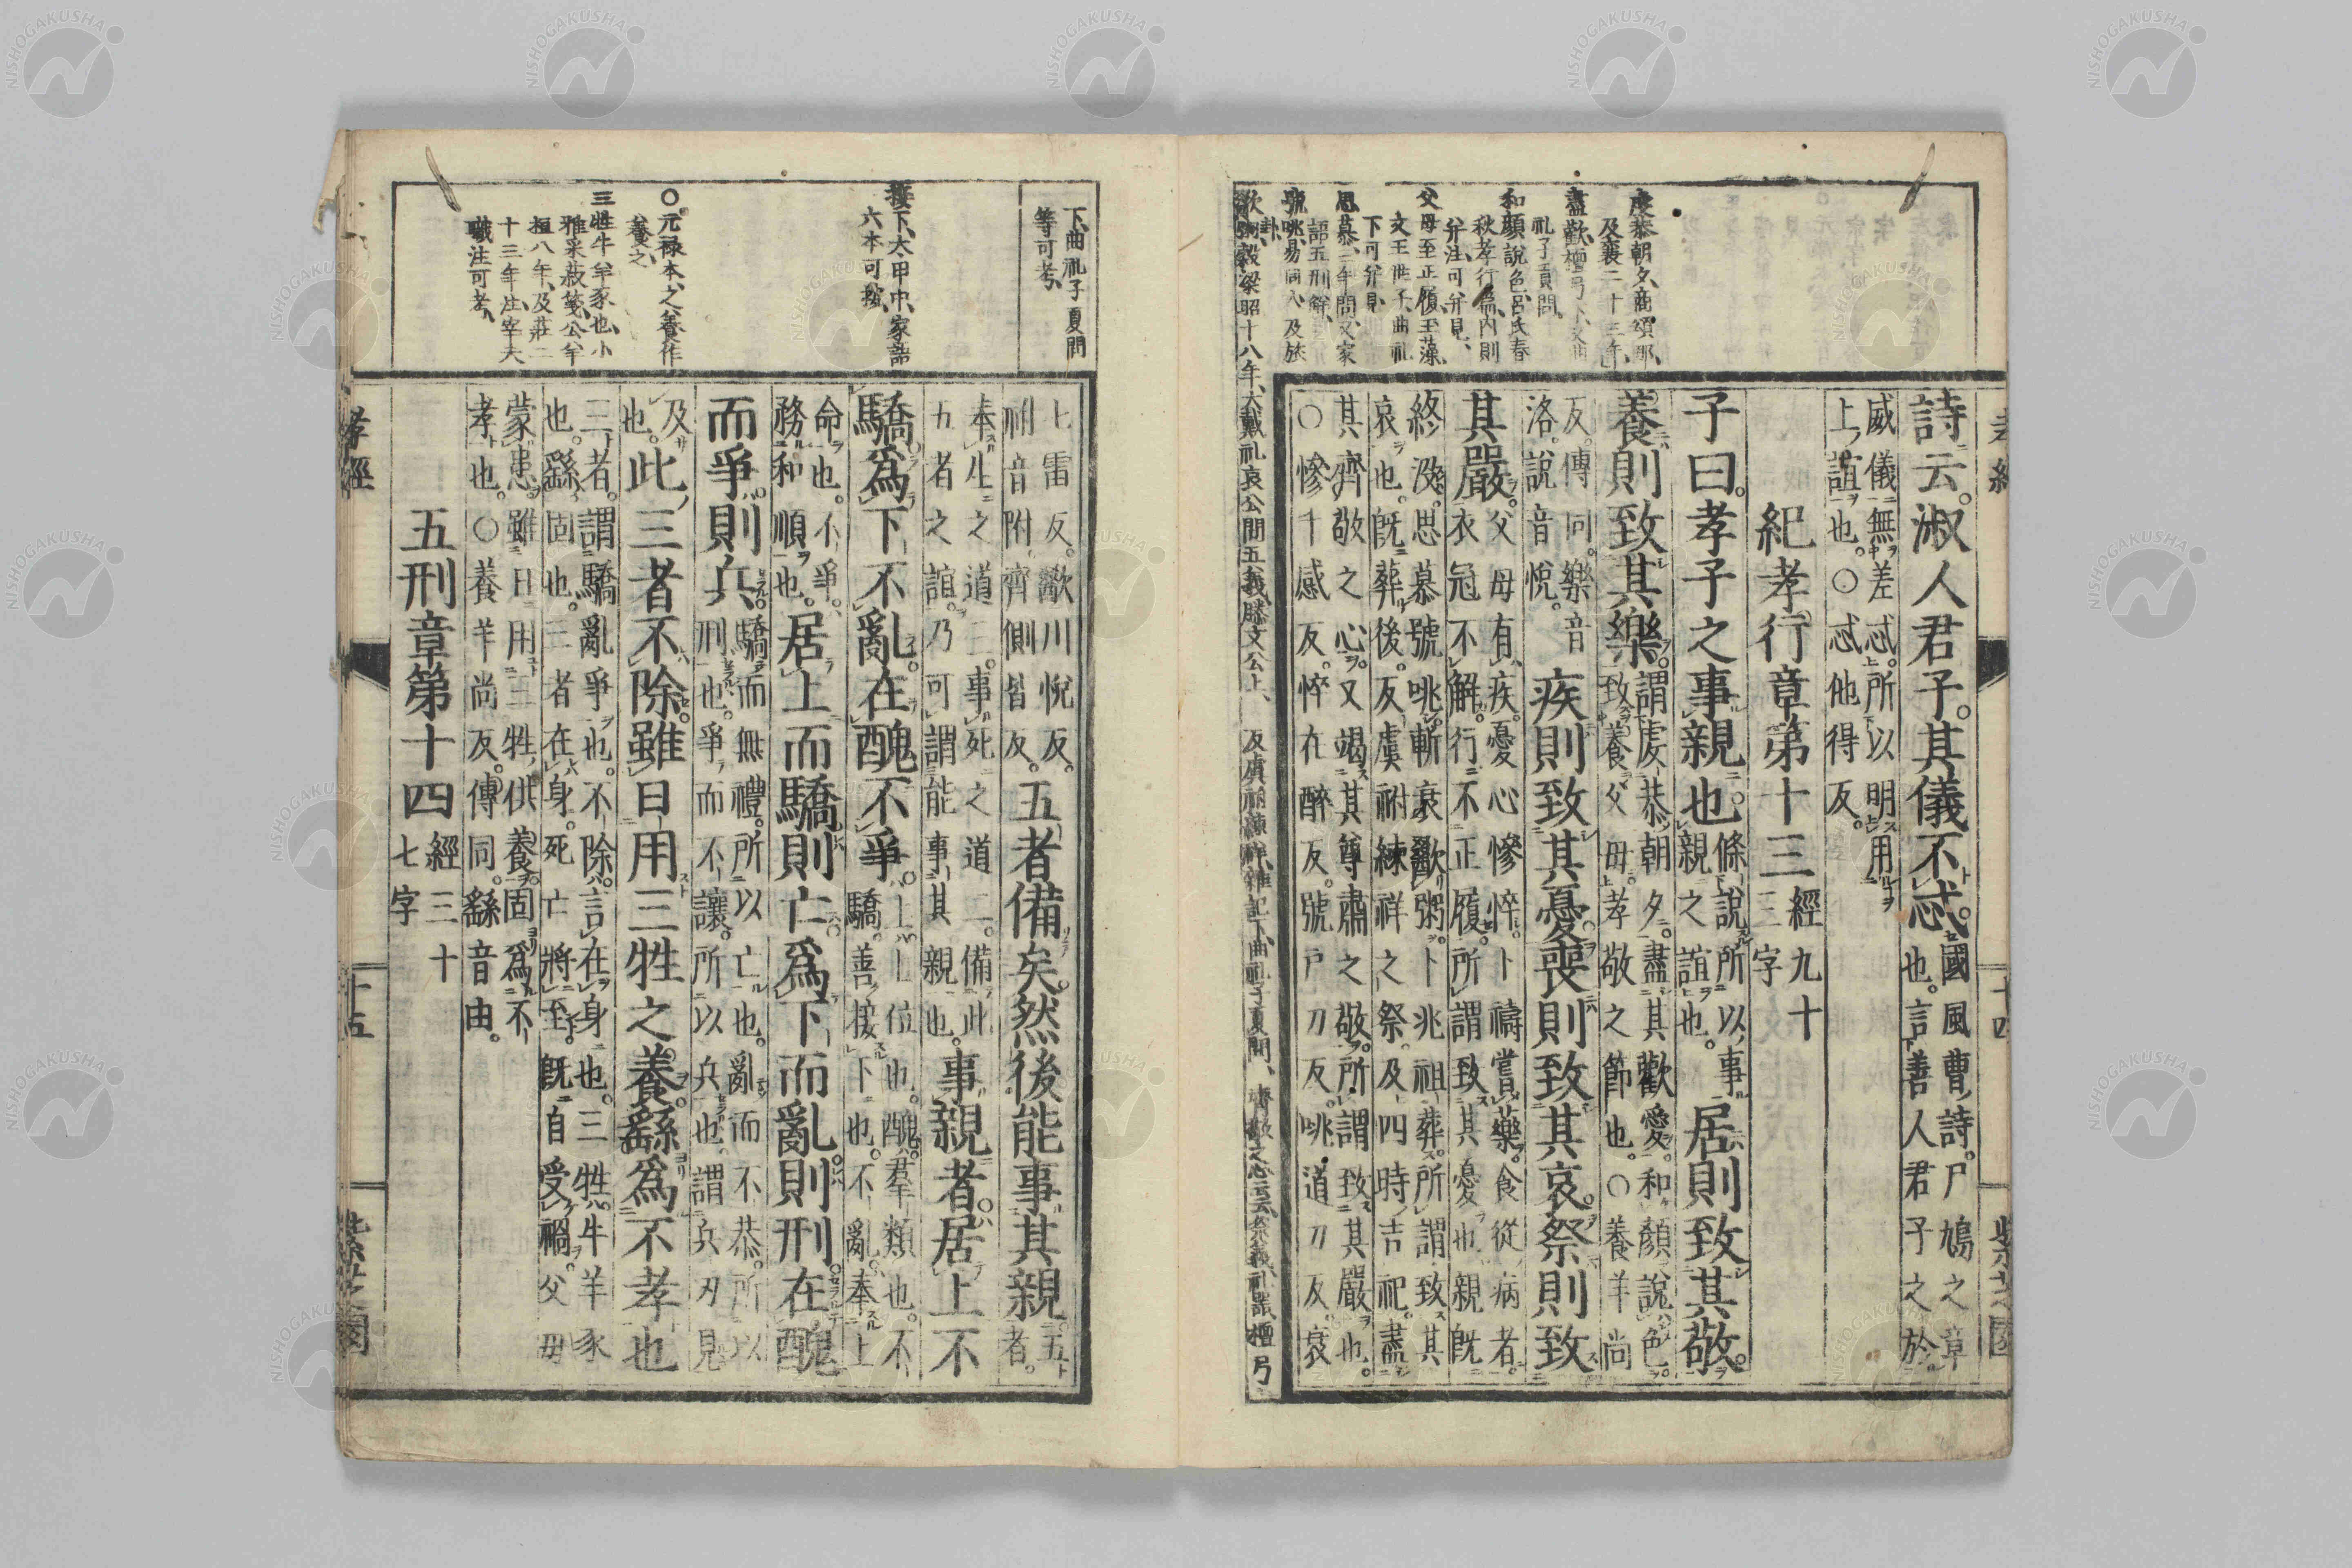 詩云。淑人君子。其儀不忒。國風曹詩。尸鳩之章也。言善人君子之於
威儀無差忒。所以明用上誼也。○忒他得反。
紀孝行章第十三 經九十三字
子曰。孝子之事親也。條說所以事親之誼也。居則致其敬。
養則致其樂。謂虔恭朝夕。盡其歡愛。和顏說色。致養父母。孝敬之節也。○養羊尚
反。傳同。樂音洛。說音悅。疾則致其憂。喪則致其哀。祭則致
其嚴。父母有疾。憂心慘悴。卜禱嘗藥。食從病者。衣冠不解。行不正履。所謂致其憂也。親既
終沒。思慕號咷。斬衰歠粥。卜兆祖葬。所謂致其哀也。既葬後。反虞祔練祥之祭。及四時吉祀。盡
其齊敬之心。又竭其尊肅之敬。所謂致其嚴也。○慘千感反。悴在醉反。號戶刀反。咷道刀反。衰
虔恭朝夕、商頌那、及襄二十三年、
盡歡、檀弓下、
祀子貢問、
和顏說色、呂氏春秋孝行篇、内則并注、可并見、
父母至正履、玉藻、文王世子、曲礼下可并見、
思慕、三年問、又家語五刑解、
號咷、易同人、及旅卦、
歠粥、穀梁昭十八年、大戴礼哀公問五義、滕文公上、
反虞祔練祥、雜記下、曲礼子夏問、
孝經
十四
紫芝園
七雷反。歠川悅反。祔音附。齊側皆反。五者備矣。然後能事其親。五者。
奉生之道三。事死之道二。備此五者之誼。乃可謂能事其親也。事親者。居上不
驕。為下不亂。在醜不爭。上上位也。醜羣類也。不驕善接下也。不亂奉上
命也。不爭。務和順也。居上而驕則亡。為下而亂則刑。在醜
而爭則兵。驕而無禮。所以亡也。亂而不恭。所以刑也。爭而不讓。所以兵也。謂兵刃見
及也。此三者不除。雖日用三牲之養。繇為不孝也
三者。謂驕亂爭也。不除。言在身也。三牲。牛羊豕也。繇固也。三者在身。死亡將至。既自受禍。父母
蒙患。雖日用三牲供養。固為不孝也。○養羊尚反。傳同。繇音由。
五刑章第十四 經三十七字
下、曲礼子夏問等可考、
接下、太甲中、家語六本可按、
○元禄本、之養作養之、
三牲牛羊豕也、小雅采菽箋、公羊桓八年、及莊二十三年注、宰夫職注可考、
孝經
十五
紫芝園
NISHOGAKUSHA